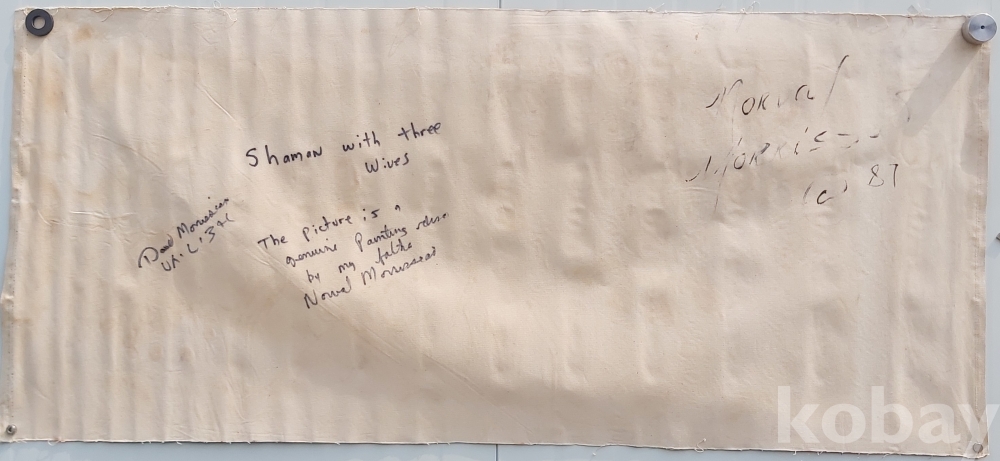 Shaman with three
Wives
The picture is a
genuine Painting
by my father
Norval Morrisseau
David Morrisseau
Norval
(c) 87
kobay